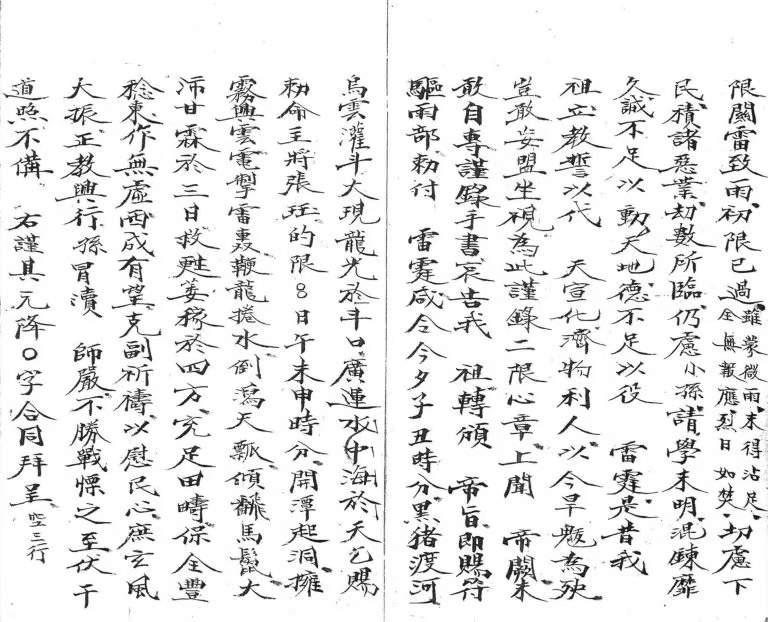 限關雷致雨初限已過雖蒙微雨未得沾足全無報應烈日如焚切慮下
民積諸惡業刼數所臨仍慮小孫請學未明混鍊靡
久誠不足以動天地德不足以役 雷霆是昔我
祖立教誓以代 天宣化濟物利人以今旱魃為殃
豈敢妄盟坐視為此謹錄二限心章上聞 帝闕未
敢自專謹錄手書哀告我 祖轉頒 帝旨即賜符
驅雨部勅付 雷霆咸令今夕子丑時分黑猪渡河
烏雲灌斗大現龍光於斗口廣運水中海於天乞賜
勅命主將張珏的限8日午未申時分開潭起洞擁
霧興雲電掣雷轟鞭龍捲水倒瀉天瓢傾翻馬鬣大
沛甘霖於三日救甦姜稼於四方充足田疇保全豐
稔東作無虛西成有望克副祈禱以慰民心庶玄風
大振正教興行孫冒瀆 師嚴不勝戰慄之至伏干
道照不備 右謹具元降〇字合同拜呈 空三行